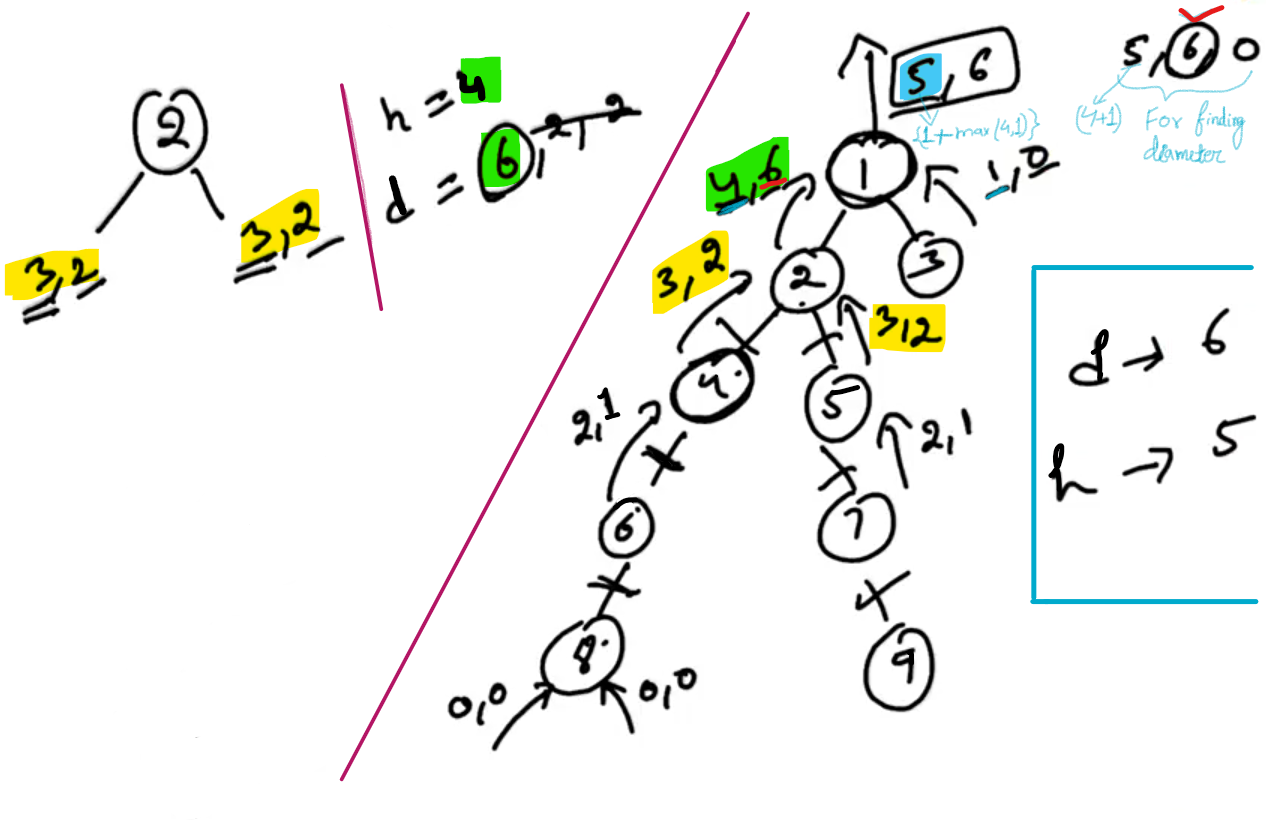 2
3,2
3,2
h = 4
d = 6, 2, 2
5, 6
{1+max(4,1)}
5, 6, 0
(4+1)
For finding
diameter
1
4,6
1,0
3,2
2
3
3,2
4
5
2,1
2,1
6
7
8
9
0,0
0,0
d → 6
h → 5